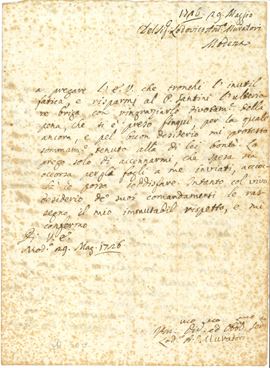 1726. 29. Maggio
Del Sig. Lodovico Ant. Muratori
Modena
a pregare V. E. che tronchi l'inutil
fatica, e risparmi al P. Santini l'ulterio-
re briga, con ringraziarlo divotam. della
pena, che si è preso finqui, per la quale
ancora, e pel buon desiderio mi protesto
sommam. tenuto alla di lei bontà. La
prego solo di accennarmi, che spesa sia
occorsa per gli fogli a me inviati, acciocchè
io possa soddisfare. Intanto col vivo
desiderio de' suoi comandamenti le ras-
segno il mio immutabil rispetto, e mi
confermo
Di V. E.
Mod. 29. Mag. 1726
Um. Div. ed Obbl. Ser.
Lod. Ant. Muratori